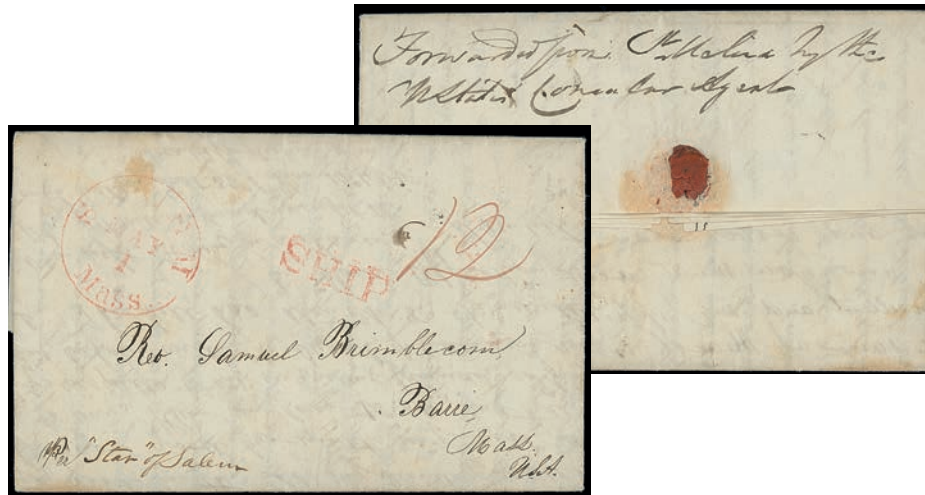 Forwarded from St Helena by the
U States Consular Agent
SALEM
MAY
1
Mass.
SHIP
12
Rev. Samuel Brimblecom
Barre,
Mass.
U.S.A.
Per "Star" of Salem